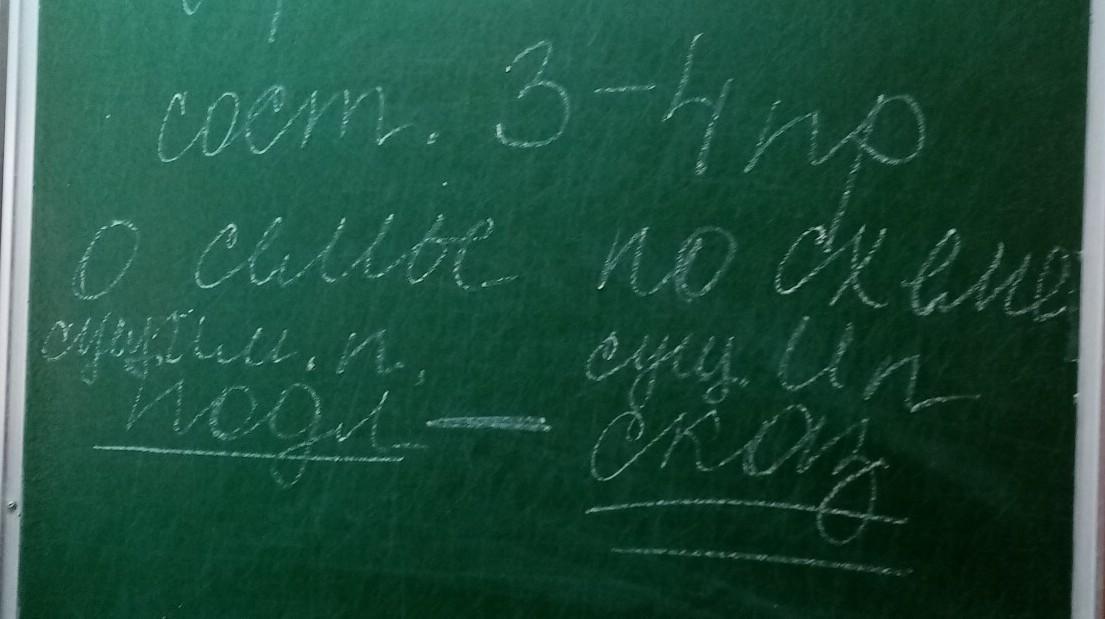 сост. 3-4 пр
о семье по схеме
сущ. им. п. сущ. И п
подл — сказ